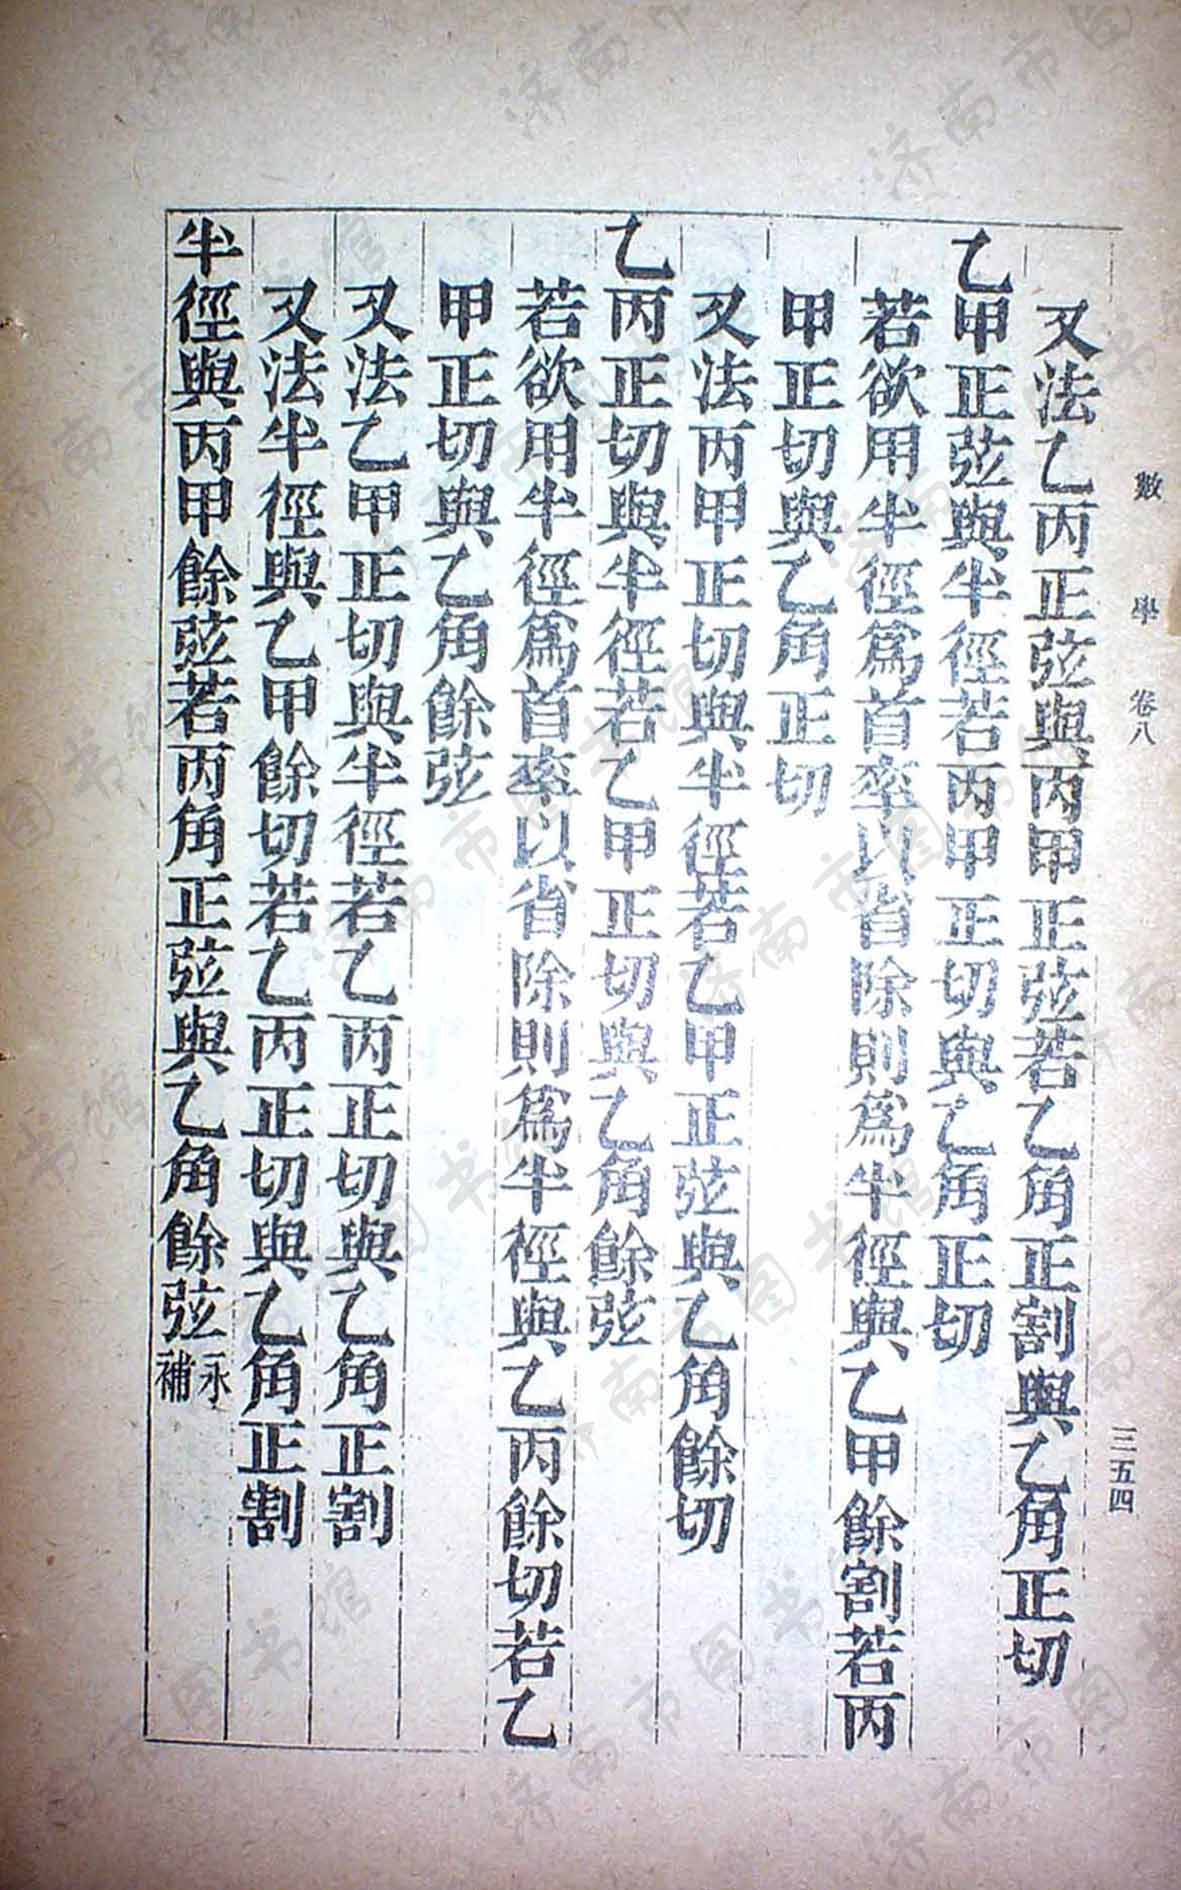 數學 卷八 三五四
又法乙丙正弦與丙甲正弦若乙角正割與乙角正切
乙甲正弦與半徑若丙甲正切與乙角正切
若欲用半徑爲首率以省除則爲半徑與乙甲餘割若丙
甲正切與乙角正切
又法丙甲正切與半徑若乙甲正弦與乙角餘切
乙丙正切與半徑若乙甲正切與乙角餘弦
若欲用半徑爲首率以省除則爲半徑與乙丙餘切若乙
甲正切與乙角餘弦
又法乙甲正切與半徑若乙丙正切與乙角正割
又法半徑與乙甲餘切若乙丙正切與乙角正割
半徑與丙甲餘弦若丙角正弦與乙角餘弦永補
济南市图书馆